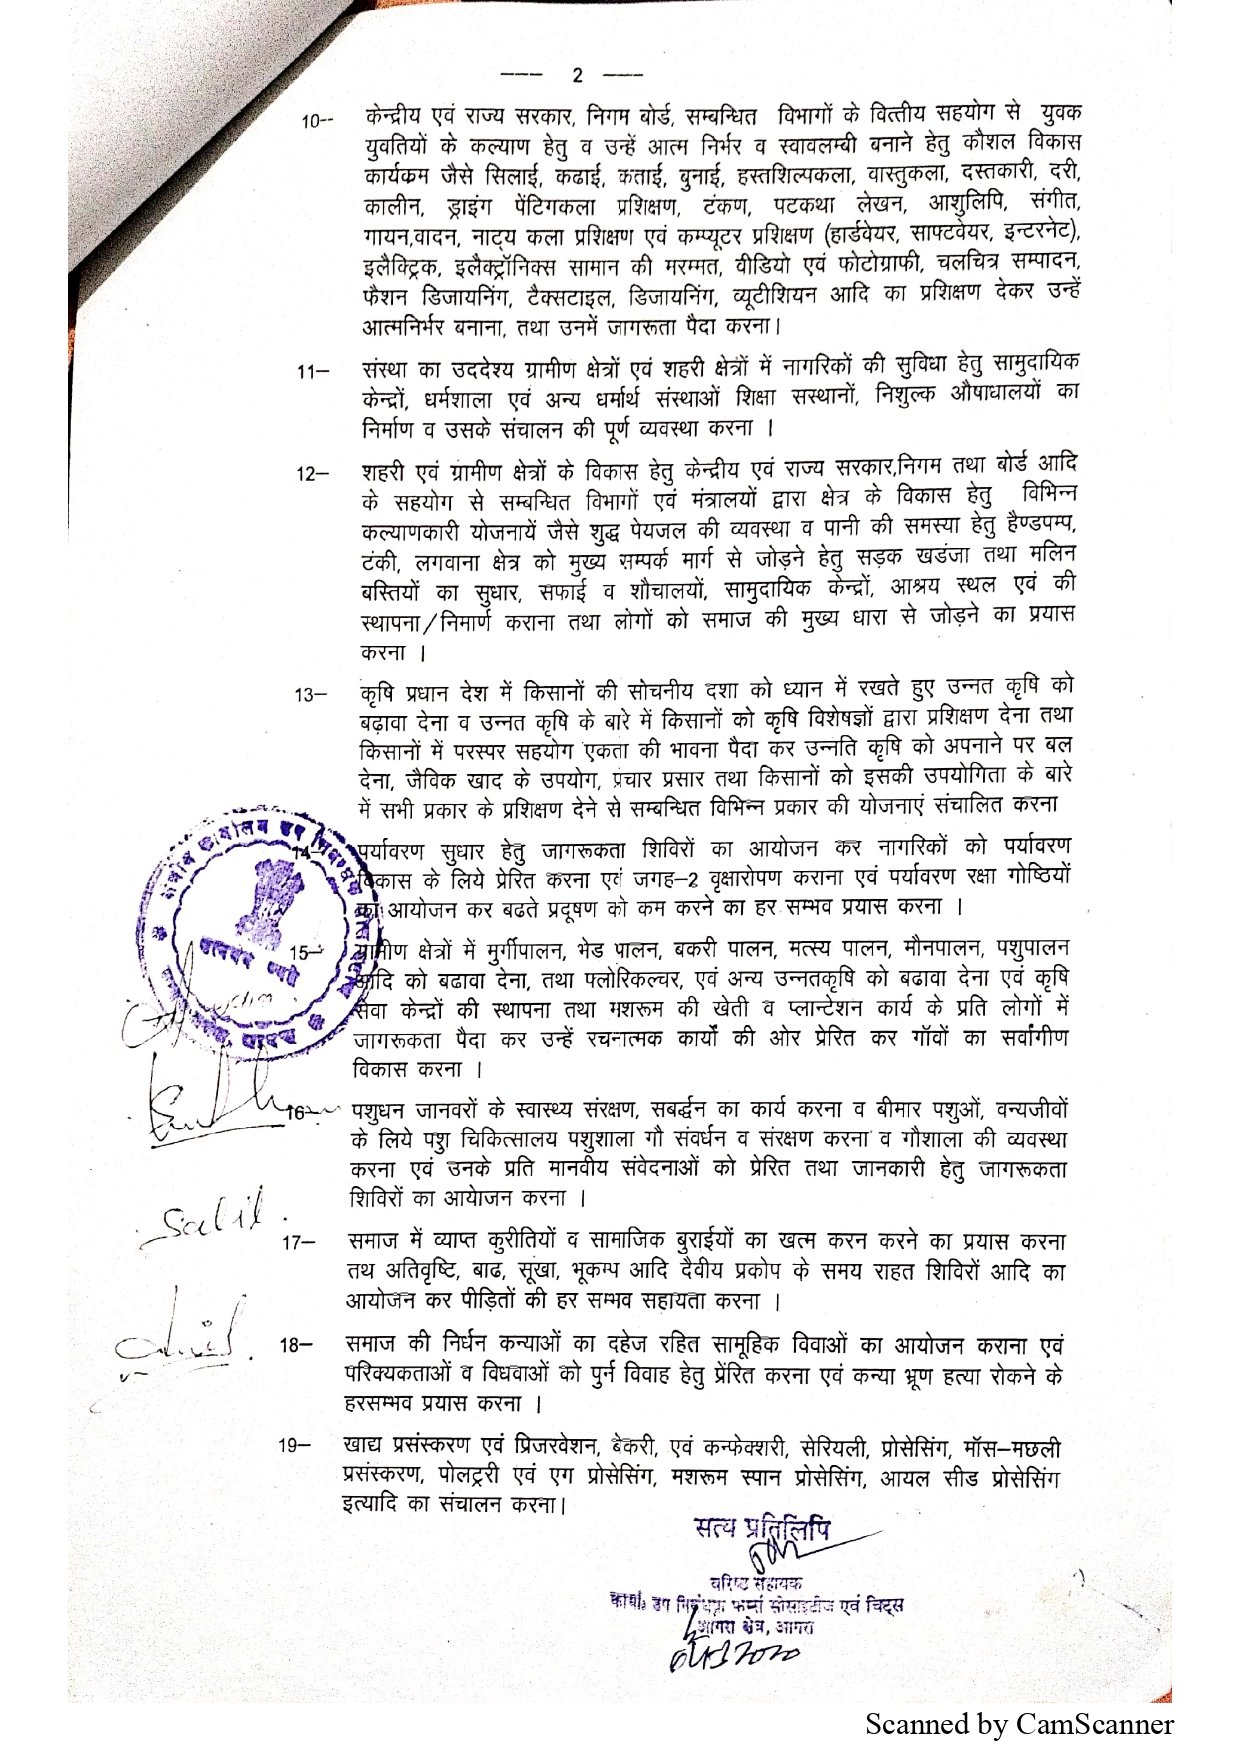 --- 2 ---
10-- केन्द्रीय एवं राज्य सरकार, निगम बोर्ड, सम्बन्धित विभागों के वित्तीय सहयोग से युवक
युवतियों के कल्याण हेतु व उन्हें आत्म निर्भर व स्वावलम्बी बनाने हेतु कौशल विकास
कार्यकम जैसे सिलाई, कढाई, कताई, बुनाई, हस्तशिल्पकला, वास्तुकला, दस्तकारी, दरी,
कालीन, ड्राइंग पेंटिगकला प्रशिक्षण, टंकण, पटकथा लेखन, आशुलिपि, संगीत,
गायन,वादन, नाट्य कला प्रशिक्षण एवं कम्प्यूटर प्रशिक्षण (हार्डवेयर, साफ्टवेयर, इन्टरनेट),
इलैक्ट्रिक, इलैक्ट्रॉनिक्स सामान की मरम्मत, वीडियो एवं फोटोग्राफी, चलचित्र सम्पादन,
फैशन डिजायनिंग, टैक्सटाइल, डिजायनिंग, व्यूटीशियन आदि का प्रशिक्षण देकर उन्हें
आत्मनिर्भर बनाना, तथा उनमें जागरूता पैदा करना।
11– संस्था का उददेश्य ग्रामीण क्षेत्रों एवं शहरी क्षेत्रों में नागरिकों की सुविधा हेतु सामुदायिक
केन्द्रों, धर्मशाला एवं अन्य धर्मार्थ संस्थाओं शिक्षा सस्थानों, निशुल्क औषाधालयों का
निर्माण व उसके संचालन की पूर्ण व्यवस्था करना ।
12– शहरी एवं ग्रामीण क्षेत्रों के विकास हेतु केन्द्रीय एवं राज्य सरकार,निगम तथा बोर्ड आदि
के सहयोग से सम्बन्धित विभागों एवं मंत्रालयों द्वारा क्षेत्र के विकास हेतु विभिन्न
कल्याणकारी योजनायें जैसे शुद्ध पेयजल की व्यवस्था व पानी की समस्या हेतु हैण्डपम्प,
टंकी, लगवाना क्षेत्र को मुख्य सम्पर्क मार्ग से जोड़ने हेतु सड़क खडंजा तथा मलिन
बस्तियों का सुधार, सफाई व शौचालयों, सामुदायिक केन्द्रों, आश्रय स्थल एवं की
स्थापना/निमार्ण कराना तथा लोगों को समाज की मुख्य धारा से जोड़ने का प्रयास
करना ।
13– कृषि प्रधान देश में किसानों की सोचनीय दशा को ध्यान में रखते हुए उन्नत कृषि को
बढ़ावा देना व उन्नत कृषि के बारे में किसानों को कृषि विशेषज्ञों द्वारा प्रशिक्षण देना तथा
किसानों में परस्पर सहयोग एकता की भावना पैदा कर उन्नति कृषि को अपनाने पर बल
देना, जैविक खाद के उपयोग, प्रंचार प्रसार तथा किसानों को इसकी उपयोगिता के बारे
में सभी प्रकार के प्रशिक्षण देने से सम्बन्धित विभिन्न प्रकार की योजनाएं संचालित करना
14– पर्यावरण सुधार हेतु जागरूकता शिविरों का आयोजन कर नागरिकों को पर्यावरण
विकास के लिये प्रेरित करना एवं जगह–2 वृक्षारोपण कराना एवं पर्यावरण रक्षा गोष्ठियों
का आयोजन कर बढते प्रदूषण को कम करने का हर सम्भव प्रयास करना ।
15– ग्रामीण क्षेत्रों में मुर्गीपालन, भेड पालन, बकरी पालन, मत्स्य पालन, मौनपालन, पशुपालन
आदि को बढावा देना, तथा फ्लोरिकल्चर, एवं अन्य उन्नतकृषि को बढावा देना एवं कृषि
सेवा केन्द्रों की स्थापना तथा मशरूम की खेती व प्लान्टेशन कार्य के प्रति लोगों में
जागरूकता पैदा कर उन्हें रचनात्मक कार्यो की ओर प्रेरित कर गॉवों का सर्वांगीण
विकास करना ।
16– पशुधन जानवरों के स्वास्थ्य संरक्षण, सबर्द्धन का कार्य करना व बीमार पशुओं, वन्यजीवों
के लिये पशु चिकित्सालय पशुशाला गौ संवर्धन व संरक्षण करना व गौशाला की व्यवस्था
करना एवं उनके प्रति मानवीय संवेदनाओं को प्रेरित तथा जानकारी हेतु जागरूकता
शिविरों का आयेाजन करना ।
Salil
17– समाज में व्याप्त कुरीतियों व सामाजिक बुराईयों का खत्म करन करने का प्रयास करना
तथ अतिवृष्टि, बाढ, सूखा, भूकम्प आदि दैवीय प्रकोप के समय राहत शिविरों आदि का
आयोजन कर पीड़ितों की हर सम्भव सहायता करना ।
18– समाज की निर्धन कन्याओं का दहेज रहित सामूहिक विवाओं का आयोजन कराना एवं
परिक्यकताओं व विधवाओं को पुर्न विवाह हेतु प्रेंरित करना एवं कन्या भ्रूण हत्या रोकने के
हरसम्भव प्रयास करना ।
19– खाद्य प्रसंस्करण एवं प्रिजरवेशन, बेकरी, एवं कन्फेक्शरी, सेरियली, प्रोसेसिंग, मॉस–मछली
प्रसंस्करण, पोलट्री एवं एग प्रोसेसिंग, मशरूम स्पान प्रोसेसिंग, आयल सीड प्रोसेसिंग
इत्यादि का संचालन करना।
सत्य प्रतिलिपि
वरिष्ठ सहायक
कार्या. उप निबंधक फर्म्स सोसाइटीज एवं चिट्स
आगरा क्षेत्र, आगरा
Scanned by CamScanner